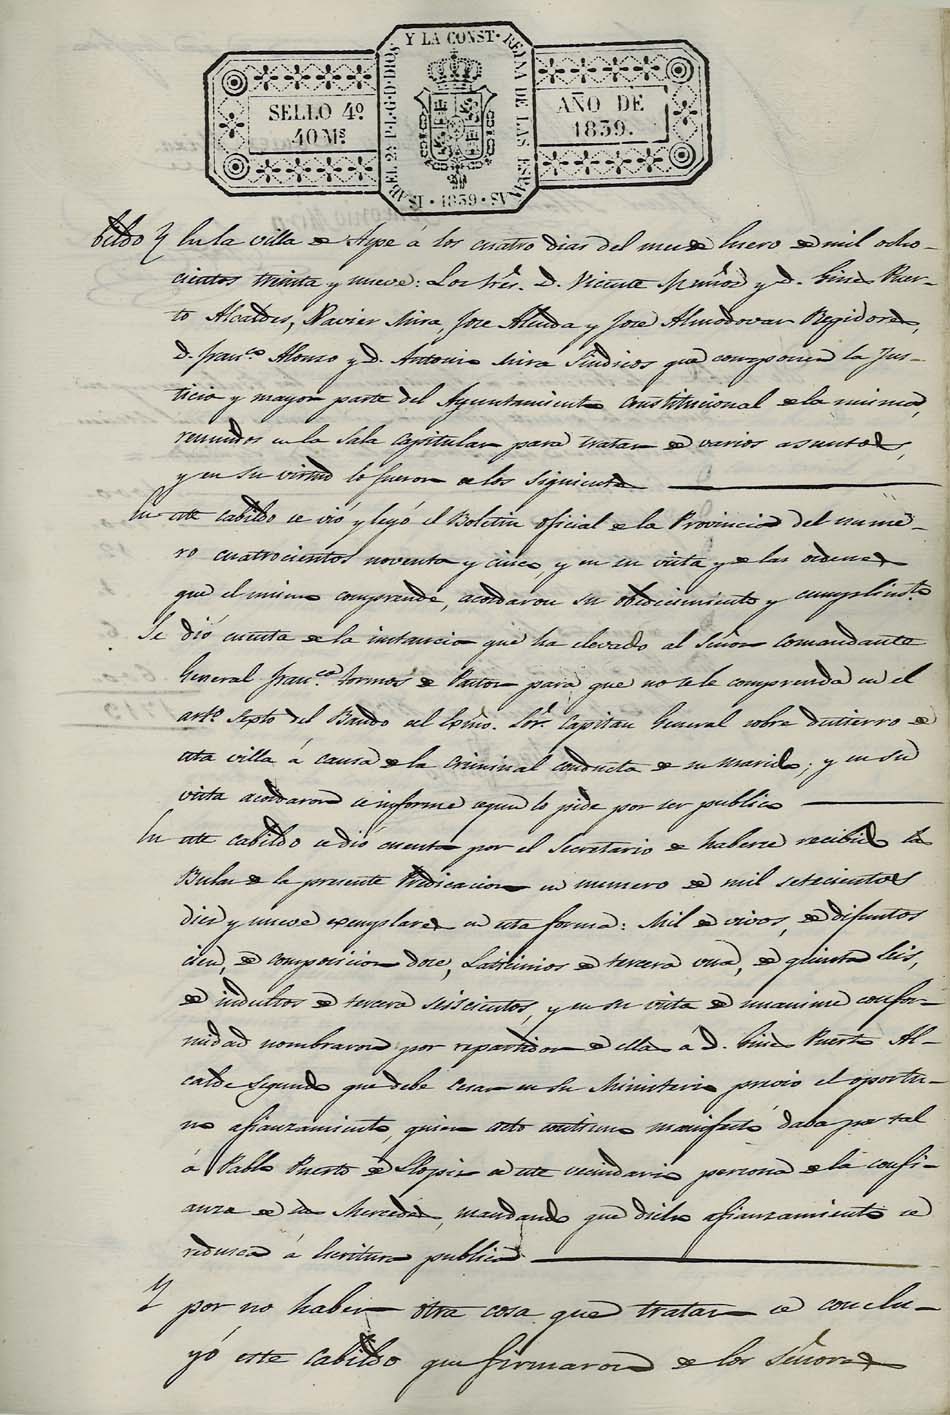 ISABEL 2ª P.L.G.D.DIOS Y LA CONST. REINA DE LAS ESPAÑAS · 1839 ·
SELLO 4º
40 Mˢ
AÑO DE
1839.
bildo Y En la villa de Aspe á los cuatro dias del mes de Enero de mil ocho-
cientos treinta y nueve: Los Sres. D. Vicente Muñoz y D. Ginés Puer-
to Alcaldes, Navier Mira, Jose Alenda y Jose Almodovar Regidores,
D. Franco Alonso y D. Antonio Mira Sindicos que componen la Jus-
ticia y mayor parte del Ayuntamiento Constitucional de la misma,
reunidos en la Sala Capitular para tratar de varios asuntos,
y en su virtud lo fueron de los Siguientes
En este cabildo se vió y leyó el Boletin oficial de la Provincia del nume-
ro cuatrocientos noventa y cinco, y en su vista y de las ordenes
que el mismo comprende, acordaron su obedecimiento y cumplimto
Se dió cuenta de la instancia que ha elevado al Señor Comandante
General Franca Tormos de Pastor para que no se le comprenda en el
arto Septo del Bando del Exmo. Sor. Capitan General sobre destierro de
esta villa á causa de la criminal conducta de su marido; y en su
vista acordaron se informe segun lo pide por ser publico
En este cabildo se dió cuenta por el Secretario de haberse recibido la
Bulas de la presente Predicacion en numero de mil setecientos
diez y nueve exemplares en esta forma: Mil de vivos, de difuntos
cien, de composicion doce, Lacticinios de tercera una, de quinta Seis,
de indultos de tercera Seiscientos, y en su vista de unanime confor-
midad nombraron por repartidor de ellas á D. Ginés Puerto Al-
calde Segundo que debe cesar en su Ministerio previo el oportu-
no afianzamiento, quien acto continuo manifestó daba por tal
á Pablo Puerto de Llopis de este vecindario persona de la confi-
anza de sus Mercedes, mandando que dicho afianzamiento se
reduzca á Escritura publica
Y por no haber otra cosa que tratar se conclu-
yó este Cabildo que firmaron de los Señores